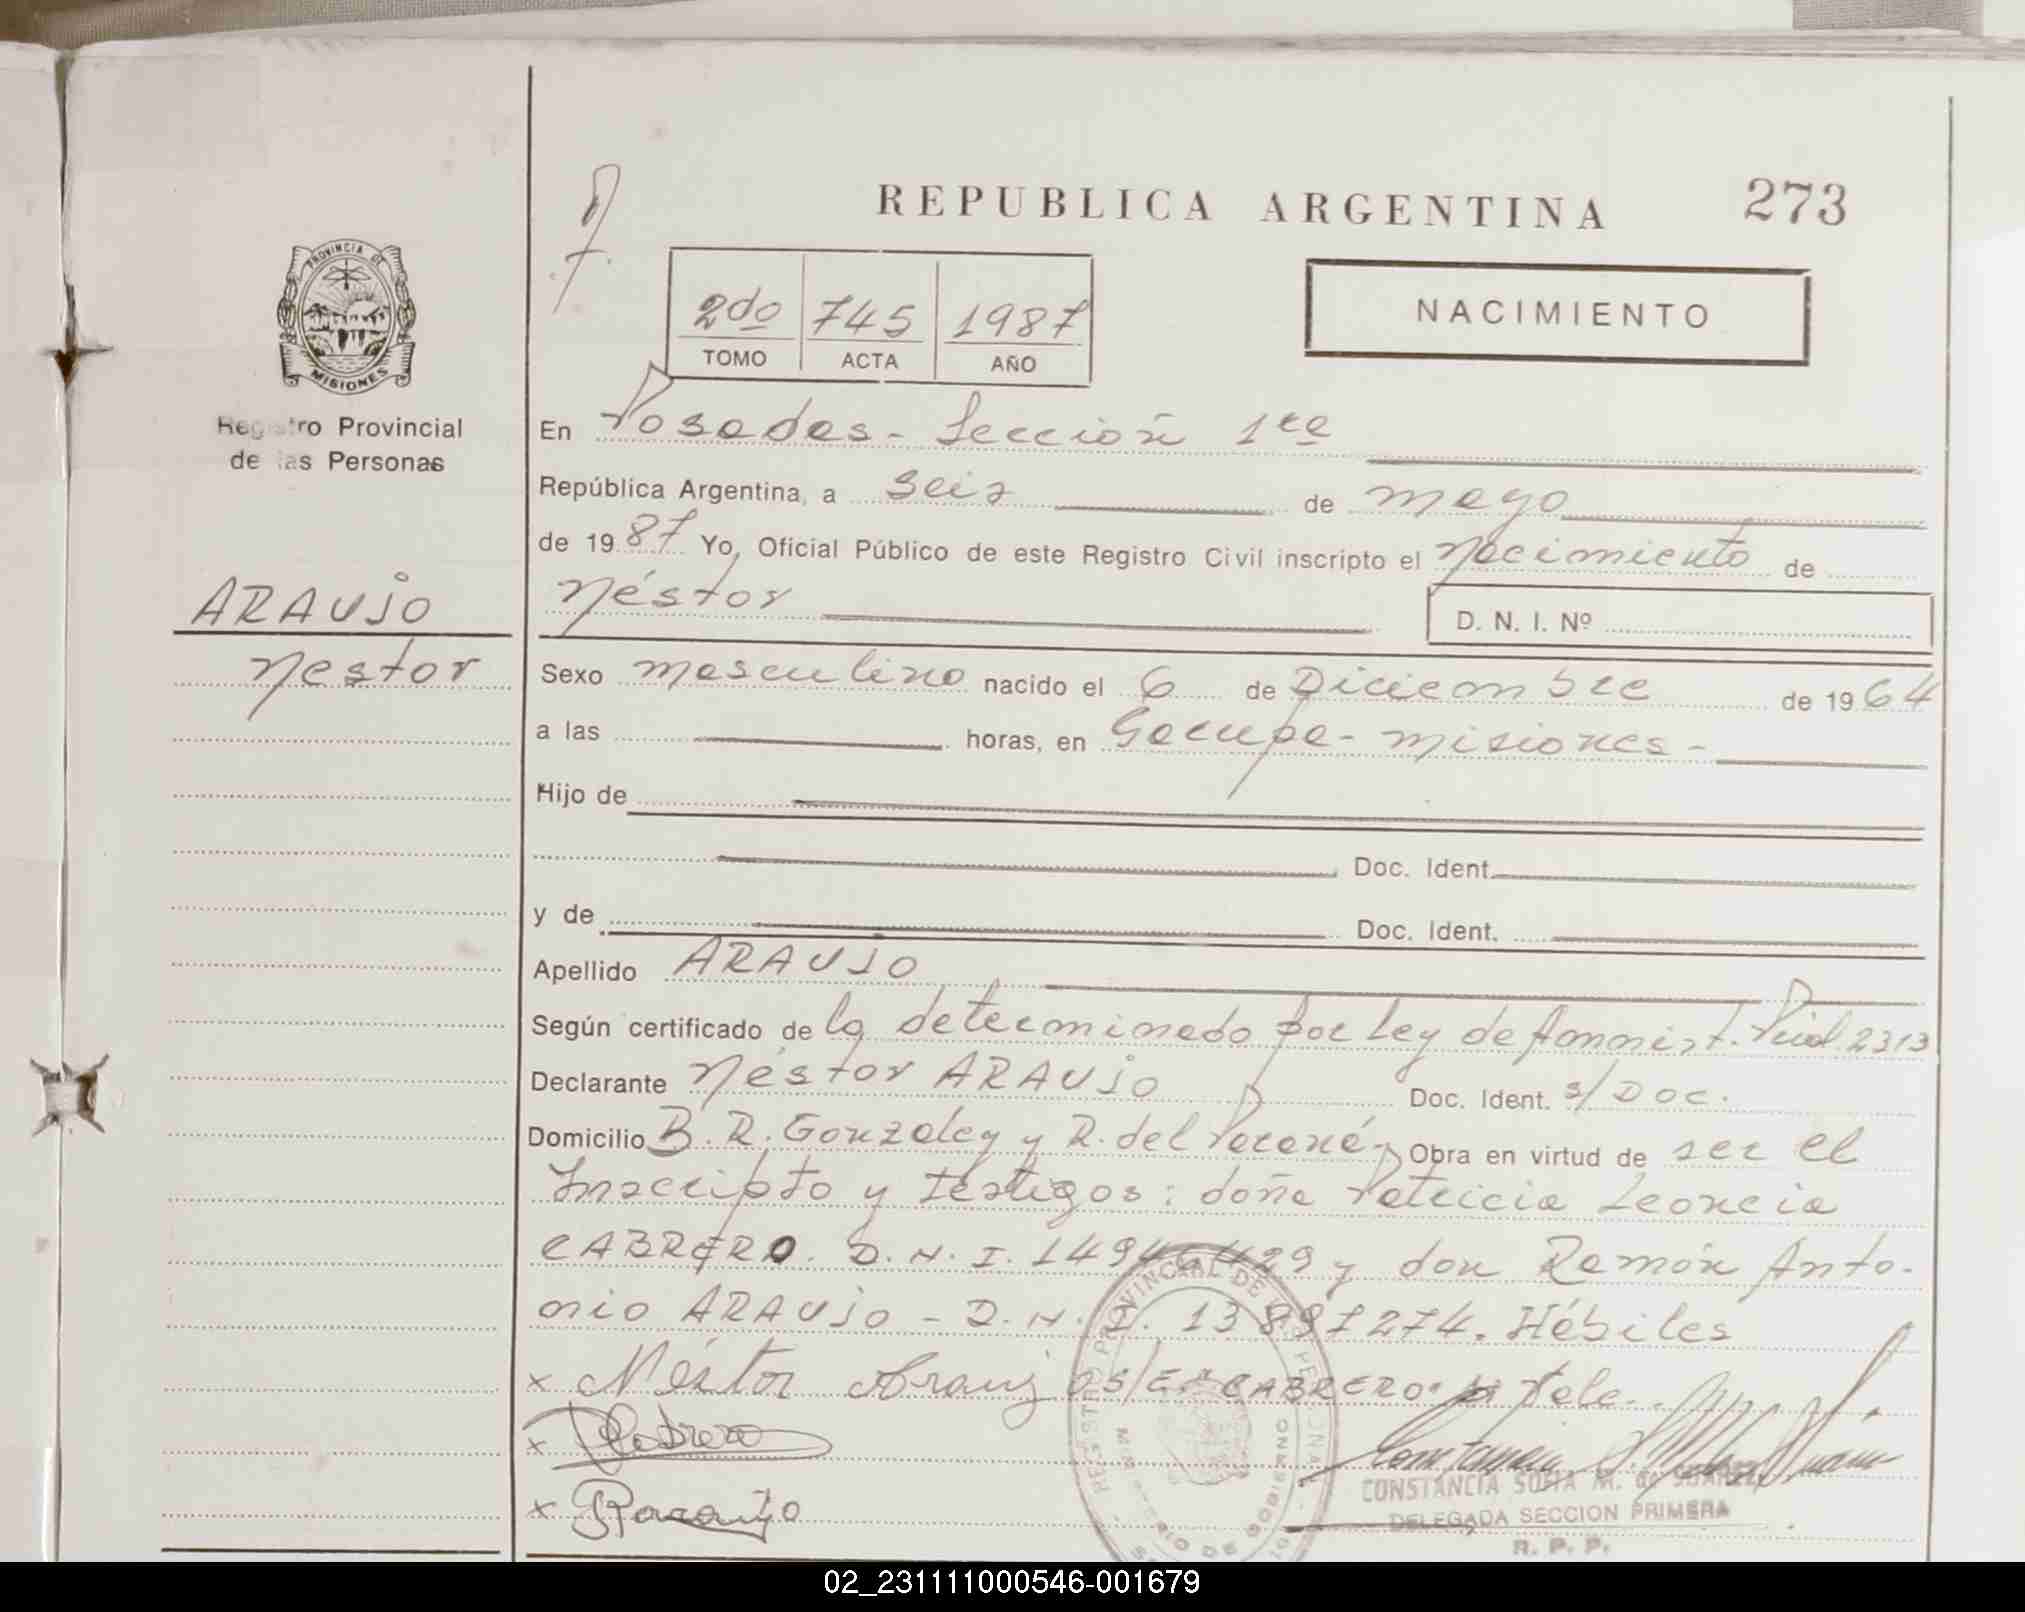 REPUBLICA ARGENTINA 273
PROVINCIA DE
MISIONES
Registro Provincial
de las Personas
2do 745 1987
TOMO ACTA AÑO
NACIMIENTO
En Posadas - Sección 1ra
República Argentina, a seis de mayo
de 1987 Yo, Oficial Público de este Registro Civil inscripto el nacimiento de
ARAUJO
Néstor
D. N. I. Nº
Nestor
Sexo masculino nacido el 6 de Diciembre de 1964
a las horas, en Gacupa - Misiones -
Hijo de
Doc. Ident.
y de Doc. Ident.
Apellido ARAUJO
Según certificado de lo determinado por Ley de Amnist. Pcial 2313
Declarante Néstor ARAUJO Doc. Ident. s/Doc.
Domicilio B. R. Gonzalez y R. del Paraná Obra en virtud de ser el
Inscripto y testigos: doña Patricia Leoncia
CABRERO. D.N.I. 14946429 y don Ramón Anto-
nio ARAUJO - D.N.I. 13897274. Hábiles
x Néstor Araujo S/E: "CABRERO" Vale.
x
x R Araujo
REGISTRO PROVINCIAL DE LAS PERSONAS
MINISTERIO DE GOBIERNO
CONSTANCIA SOFIA M. de SUAREZ
DELEGADA SECCION PRIMERA
R. P. P.
02_231111000546-001679